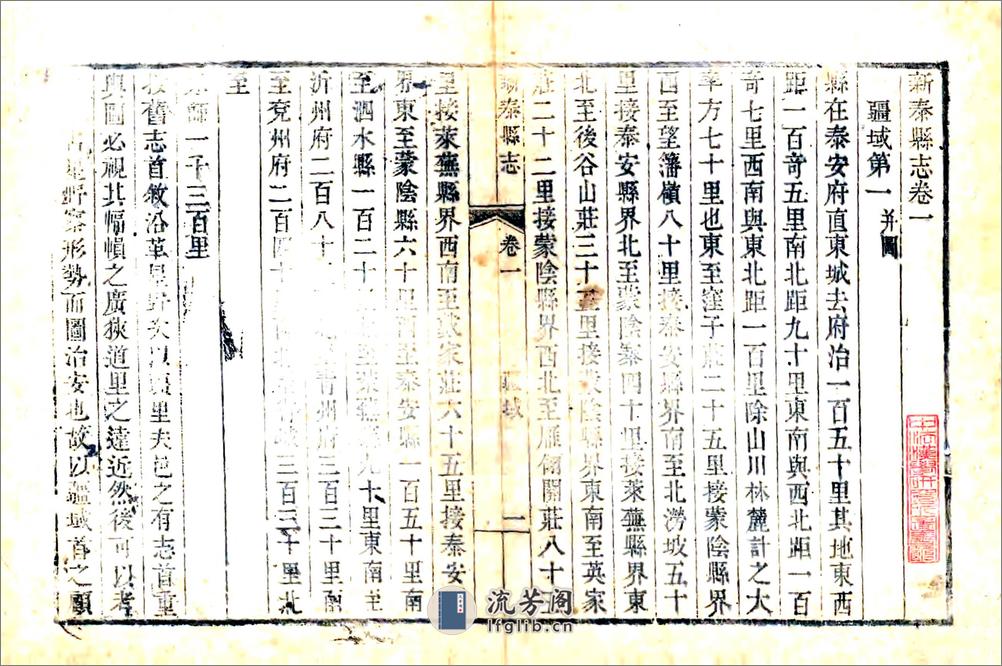 新泰縣志卷一
疆域第一 并圖
縣在泰安府直東城去府治一百五十里其地東西
距一百奇五里南北距九十里東南與西北距一百
奇七里西南與東北距一百里除山川林麓計之大
率方七十里也東至窪子莊二十五里接蒙陰縣界
西至望瀋嶺八十里接泰安縣界南至北澇坡五十
里接泰安縣界北至蒙陰寨四十里接萊蕪縣界東
北至後谷山莊三十五里接蒙陰縣界東南至英家
莊二十二里接蒙陰縣界西北至雁翎關莊八十
新泰縣志 卷一 疆域 一
里接萊蕪縣界西南至蘇家莊六十五里接泰安
界東至蒙陰縣六十里西至泰安縣一百五十里南
至泗水縣一百二十里北至萊蕪縣九十里東南至
沂州府二百八十里東北至青州府三百三十里西
至兗州府二百四十里西北至 三百三十里北
至
京師一千三百里
按舊志首敘沿革星野次以疆里夫邑之有志首重
輿圖必視其幅幀之廣狹道里之遠近然後可以考
占星野案形勢而圖治安也故以疆域首之顧
流芳阁
lfglib.cn